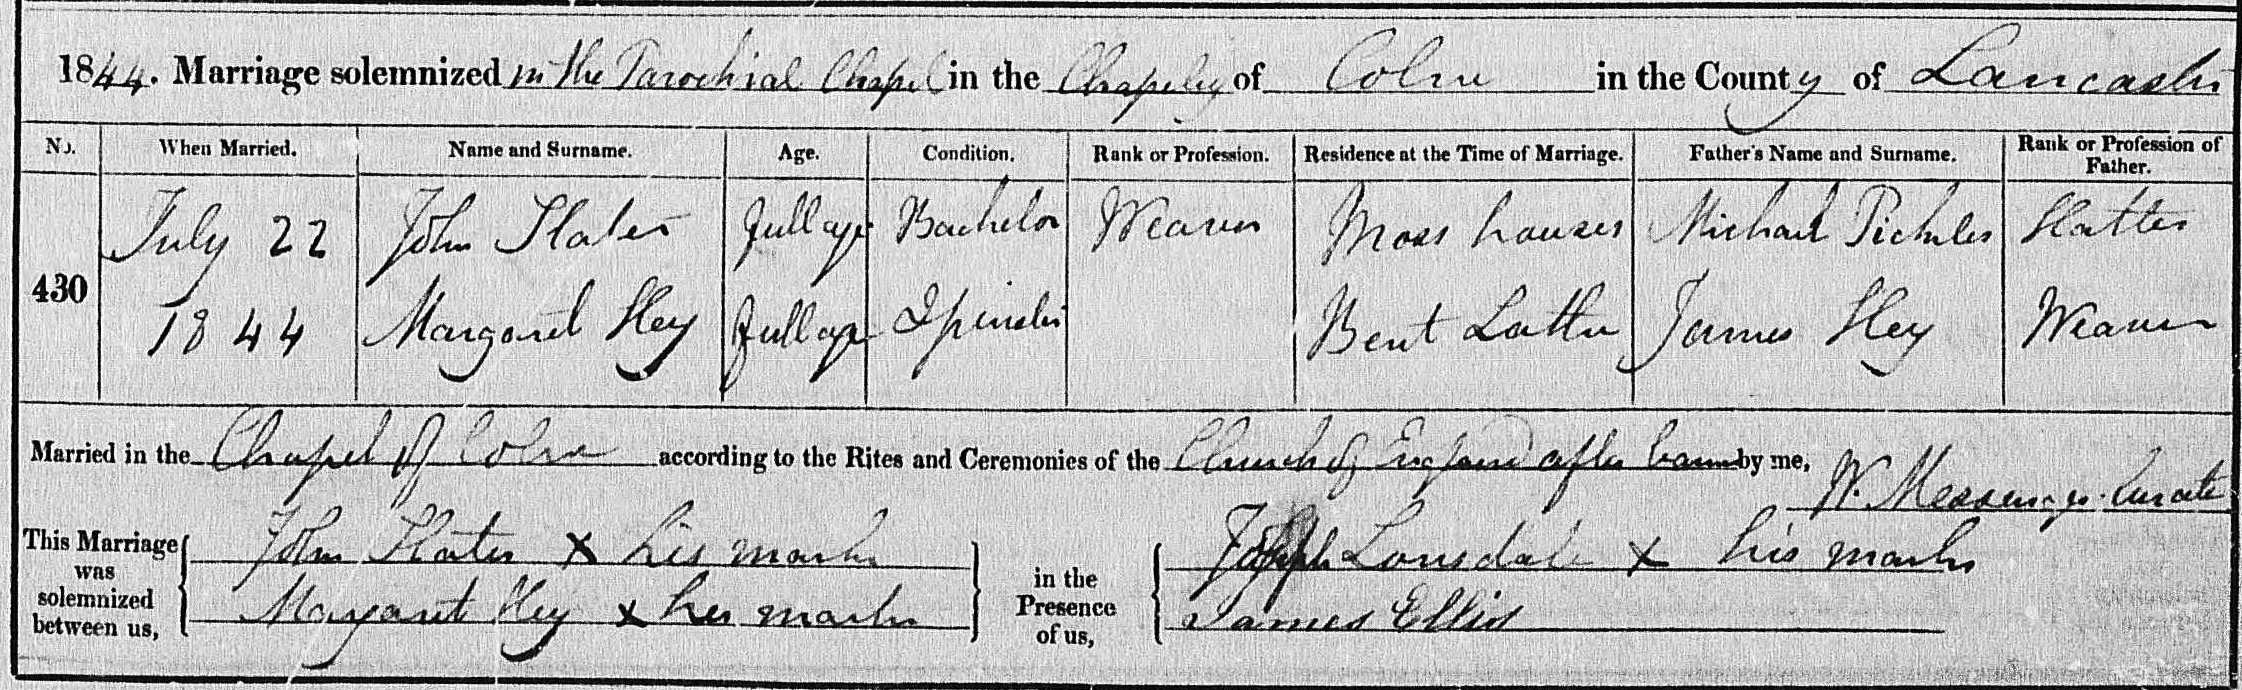 1844. Marriage solemnized in the Parochial Chapel in the Chapelry of Colne in the County of Lancaster
No. When Married. Name and Surname. Age. Condition. Rank or Profession. Residence at the Time of Marriage. Father's Name and Surname. Rank or Profession of Father.
July 22 John Slater full age Bachelor Weaver Moss houses Michael Pickles Slatter
430
1844 Margaret Hey full age Spinster Bent Lathe James Hey Weaver
Married in the Chapel of Colne according to the Rites and Ceremonies of the Church of England after banns by me,
W. Messenger Curate
This Marriage was solemnized between us,
John Slater x his mark
Margaret Hey x her mark
in the Presence of us,
Joseph Lonsdale x his mark
James Ellis